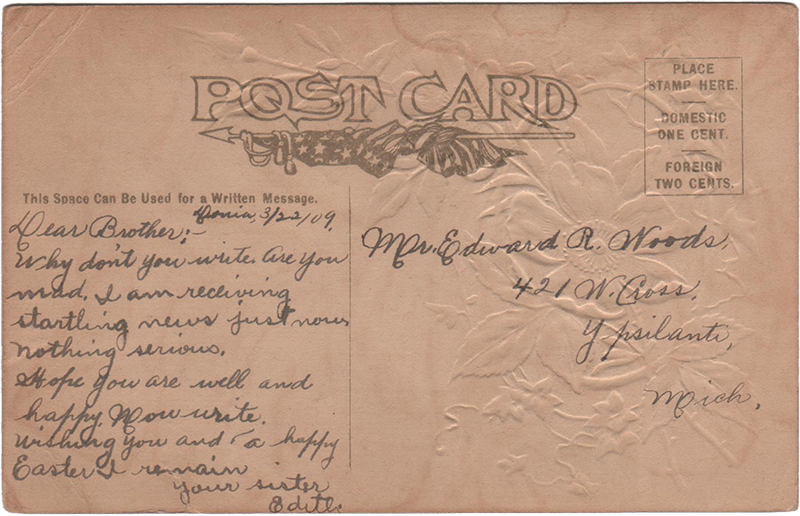 POST CARD
PLACE
STAMP HERE.
DOMESTIC
ONE CENT.
FOREIGN
TWO CENTS.
This Space Can Be Used for a Written Message.
Ionia, 3/22/09.
Dear Brother:-
Why don't you write. Are you
mad. I am receiving
startling news just now
nothing serious.
Hope you are well and
happy. Now write.
Wishing you and a happy
Easter I remain
your sister
Edith.
Mr. Edward R. Woods,
421 W. Cross,
Ypsilanti,
Mich.